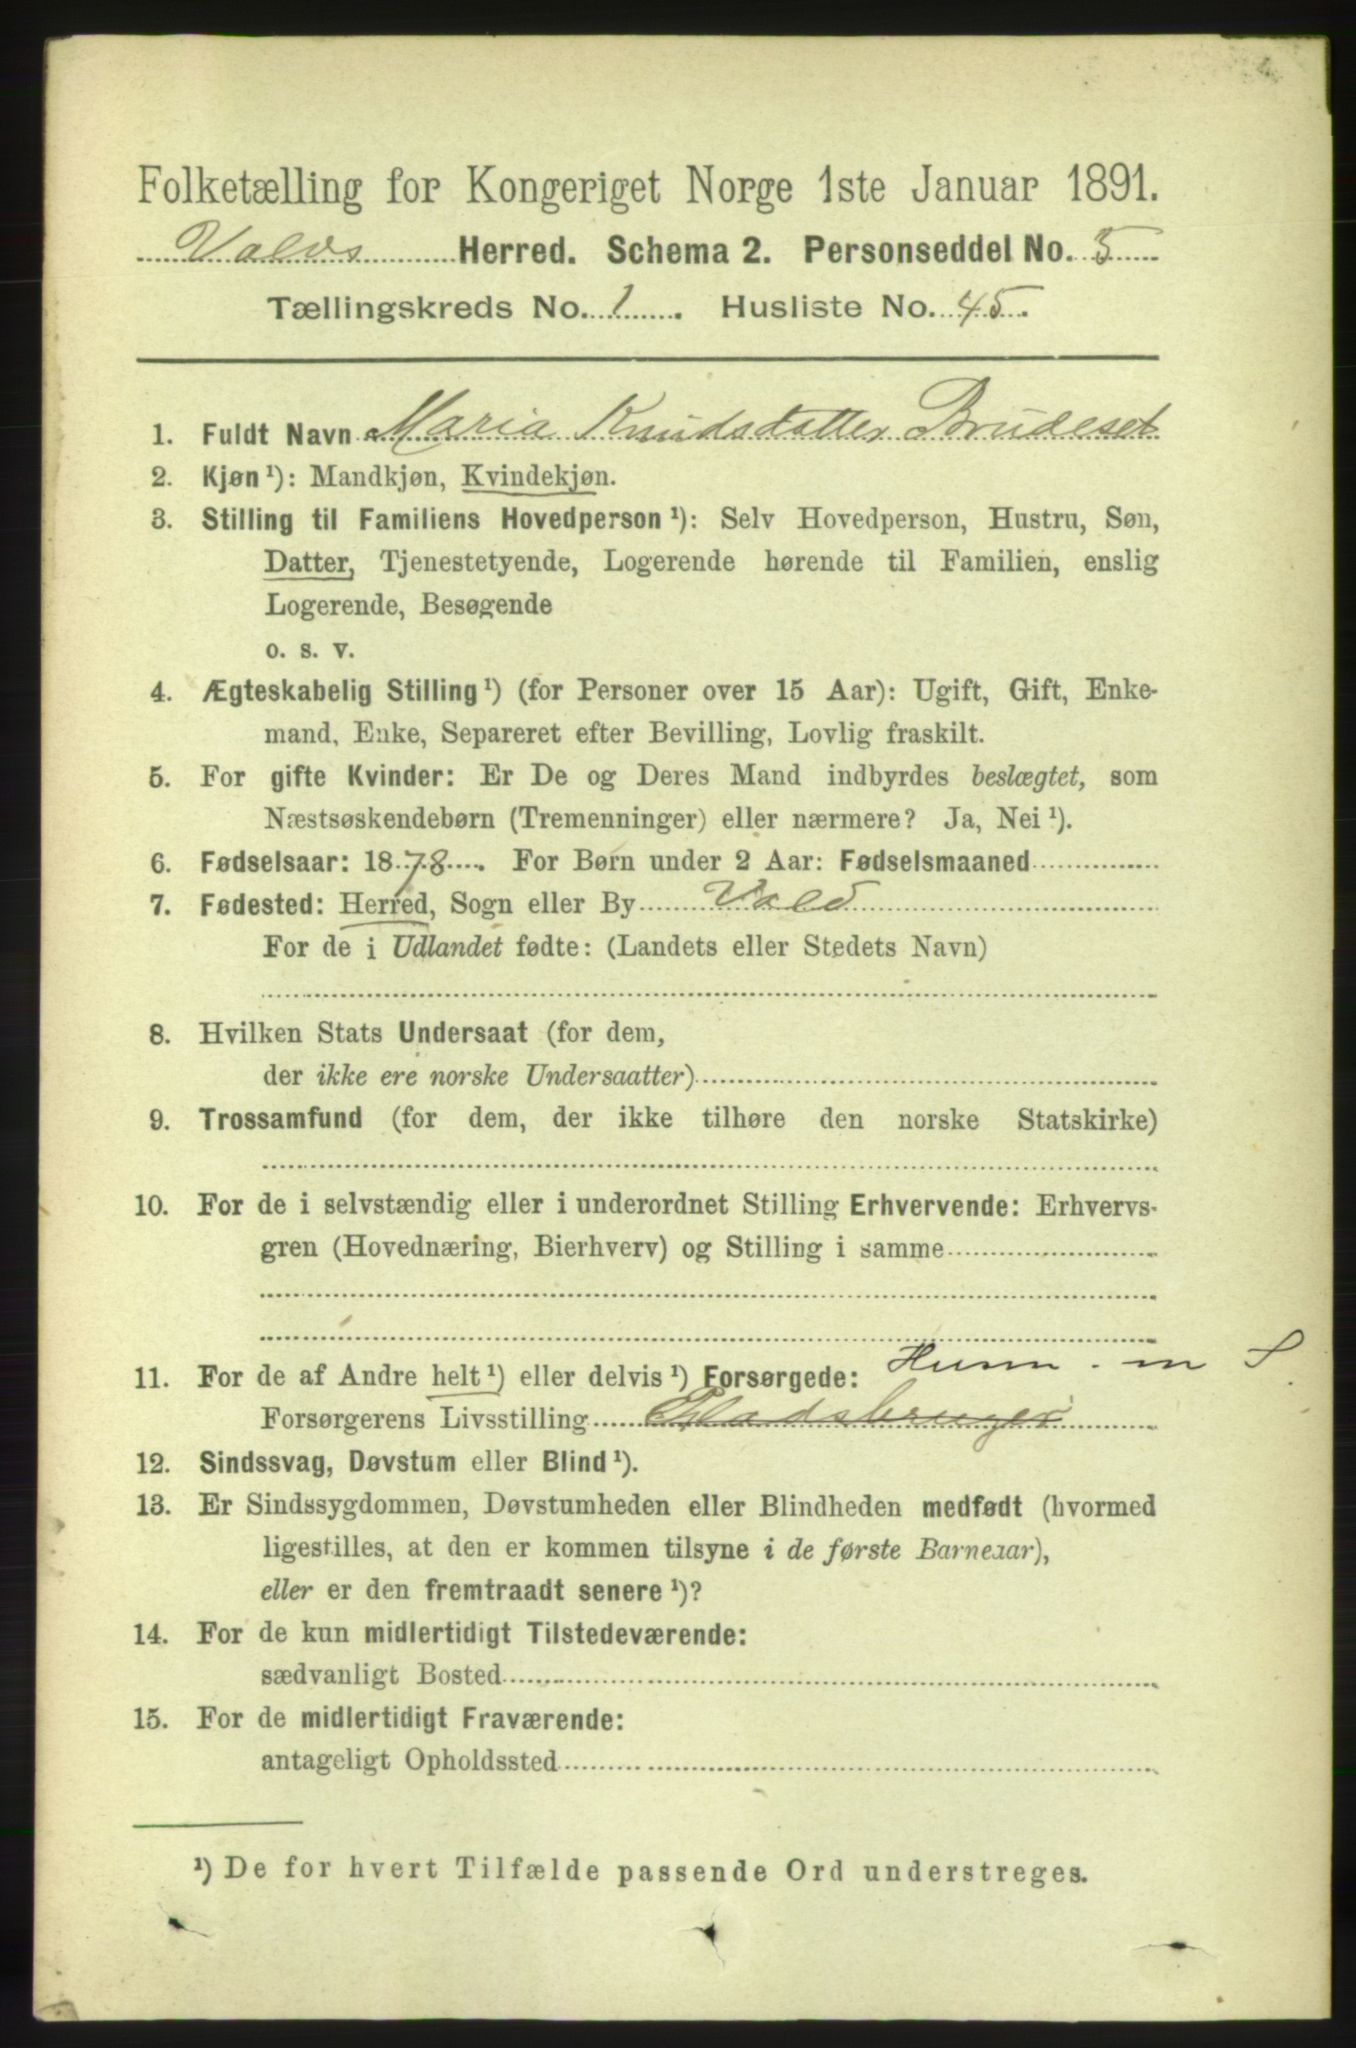 Folketælling for Kongeriget Norge 1ste Januar 1891.
Volds Herred. Schema 2. Personseddel No. 5
Tællingskreds No. 1. Husliste No. 45.
1. Fuldt Navn Maria Knudsdatter Brudeset
2. Kjøn ¹): Mandkjøn, Kvindekjøn.
3. Stilling til Familiens Hovedperson ¹): Selv Hovedperson, Hustru, Søn,
Datter, Tjenestetyende, Logerende hørende til Familien, enslig
Logerende, Besøgende
o. s. v.
4. Ægteskabelig Stilling ¹) (for Personer over 15 Aar): Ugift, Gift, Enke-
mand, Enke, Separeret efter Bevilling, Lovlig fraskilt.
5. For gifte Kvinder: Er De og Deres Mand indbyrdes beslægtet, som
Næstsøskendebørn (Tremenninger) eller nærmere? Ja, Nei ¹).
6. Fødselsaar: 1878. For Børn under 2 Aar: Fødselsmaaned
7. Fødested: Herred, Sogn eller By Vold
For de i Udlandet fødte: (Landets eller Stedets Navn)
8. Hvilken Stats Undersaat (for dem,
der ikke ere norske Undersaatter)
9. Trossamfund (for dem, der ikke tilhøre den norske Statskirke)
10. For de i selvstændig eller i underordnet Stilling Erhvervende: Erhvervs-
gren (Hovednæring, Bierhverv) og Stilling i samme
11. For de af Andre helt ¹) eller delvis ¹) Forsørgede: Husm. m S
Forsørgerens Livsstilling Pladsbruger
12. Sindssvag, Døvstum eller Blind ¹).
13. Er Sindssygdommen, Døvstumheden eller Blindheden medfødt (hvormed
ligestilles, at den er kommen tilsyne i de første Barneaar),
eller er den fremtraadt senere ¹)?
14. For de kun midlertidigt Tilstedeværende:
sædvanligt Bosted
15. For de midlertidigt Fraværende:
antageligt Opholdssted
¹) De for hvert Tilfælde passende Ord understreges.